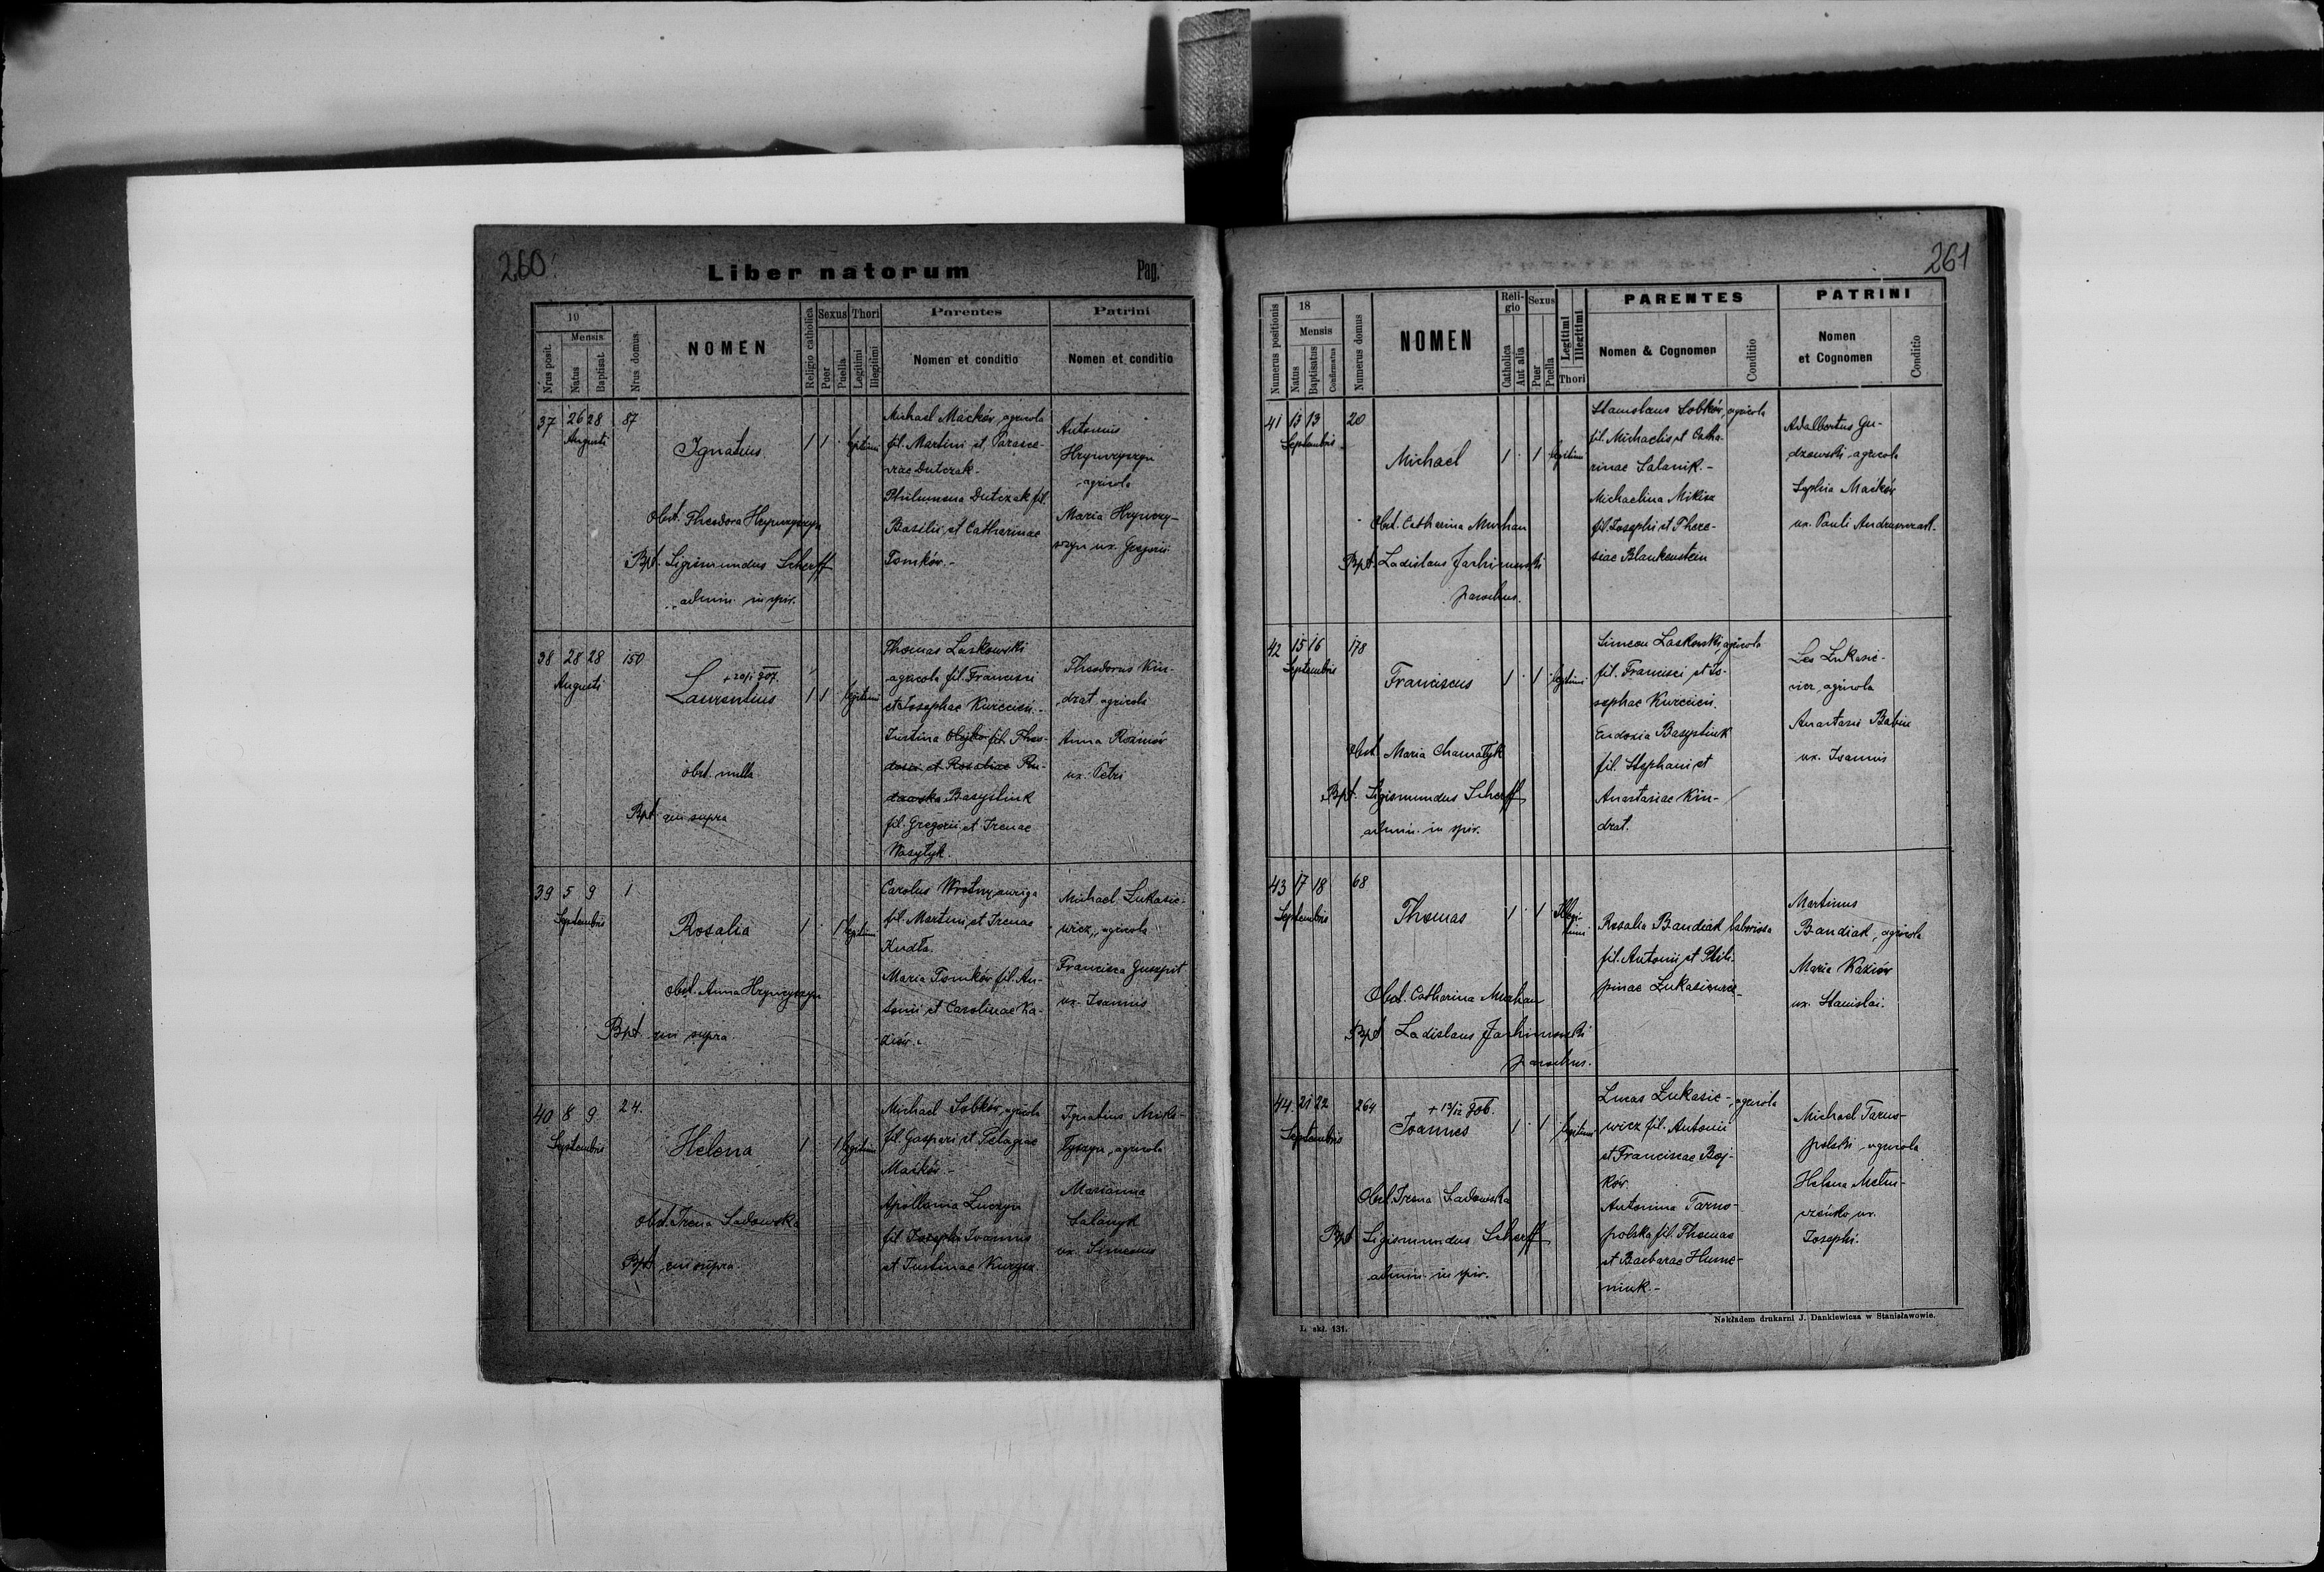 260
Liber natorum
Pag.
Nrus posit.
19
Mensis
Natus
Baptisat.
Nrus domus
NOMEN
Religio catholica
Sexus
Puer
Puella
Thori
Legitimi
Illegitimi
Parentes
Nomen et conditio
Patrini
Nomen et conditio
37 26 28 87
Augusti
Ignatius
1 1 legitimi
Obst. Theodora Hrynyszyn
Bpt. Sigismundus Scherff
admin. in spir.
Michael Maćków, agricola
fil. Martini et Parasce-
vae Dutczak.
Philumena Dutczak fil.
Basilii et Catharinae
Tomków.-
Antonius
agricola
Maria
ux. Gregorii
38 28 28 150
Augusti
+ 20/1 907.
Laurentius
1 1 legitimi
obst. nulla
Bpt qui supra
Thomas Laskowski
agricola fil. Francisci
et Josephae
Justina Olejko fil. Theo-
dosii et Rosaliae Ru-
dawska Basystiuk
fil. Gregorii et Irenae
Wasylyk.
Theodorus Kin-
drat agricola
Anna
ux. Petri
39 5 9 1
Septembris
Rosalia
1 1 legitimi
obst. Anna Hrynyszyn
Bpt. qui supra.
Carolus Wrotny auriga
fil. Martini et Irenae
Kudła.
Maria Tomków fil. An-
tonii et Carolinae Ka-
ziów.-
Michael Łukasie-
wicz, agricola
Francisca Guszpit
ux. Joannis
40 8 9 24.
Septembris
Helena
1 1 legitimi
obst. Irena Sadowska
Bpt. qui supra.
Michael Sobków, agricola
fil. Gaspari et Pelagiae
Maćków.-
Apollonia Luczyn
fil. Josephi Joannis
et Justinae
Ignatius
agricola
Marianna
Salanyk
ux. Simeonis
261
Numerus positionis
18
Mensis
Natus
Baptisatus
Confirmatus
Numerus domus
NOMEN
Reli-
gio
Catholica
Aut alia
Sexus
Puer
Puella
Legitimi
Illegitimi
Thori
PARENTES
Nomen & Cognomen
Conditio
PATRINI
Nomen
et Cognomen
Conditio
41 13 13 20
Septembris
Michael
1 1 legitimi
Obst. Catharina Murhan
Bpt. Ladislaus
parochus.
Stanislaus Sobków, agricola
fil. Michaelis et Catha-
rinae Salanik.-
Michaelina Mikisz
fil. Josephi et There-
siae Blankenstein
Adalbertus Gu-
dzowski agricola
Sophia Maćków
ux. Pauli
42 15 16 178
Septembris
Franciscus
1 1 legitimi
Obst Maria Chamatyk
Bpt. Sigismundus Scherff
admin. in spir.
Simeon Laskowski, agricola
fil. Francisci et Jo-
sephae
Eudoxia Basystiuk
fil. Stephani et
Anastasiae Kin-
drat.
Leo Łukasie-
wicz, agricola
Anastasia Babin
ux. Joannis
43 17 18 68
Septembris
Thomas
1 1 Illegi-
timi
Obst. Catharina Murhan
Bpt Ladislaus
parochus.
Rosalia Bandiak laboriosa
fil. Antonii et Phili-
pinae
Martinus
Bandiak, agricola
Maria Kaziów
ux. Stanislai.
44 21 22 264
Septembris
+ 13/12 906.
Joannes
1 1 legitimi
Obst. Irena Sadowska
Bpt Sigismundus Scherff
admin. in spir.
Lucas Łukasie-, agricola
wicz fil. Antonii
et Franciscae Boj-
ków.
Antonina Tarno-
polska fil. Thomae
et Barbarae Hume-
niuk.-
Michael Tarno-
polski agricola
Helena
ux.
Josephi.
L. skł. 131.
Nakładem drukarni J. Dankiewicza w Stanisławowie.